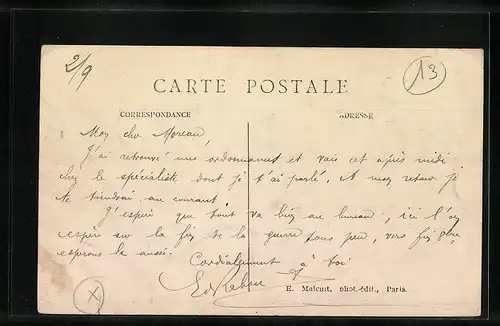 2/9
13
CARTE POSTALE
CORRESPONDANCE
ADRESSE
Mon cher Moreau,
J'ai retrouvé mes ordonnances et vais cet après midi
chez le spécialiste dont je t'ai parlé. A mon retour je
te tiendrai au courant.
J'espère que tout va bien au bureau, ici l'on
espère sur la fin de la guerre sous peu, vers fin
espérons le aussi.
Cordialement à toi
Ed
X
E. Malcuit, phot.-édit., Paris.